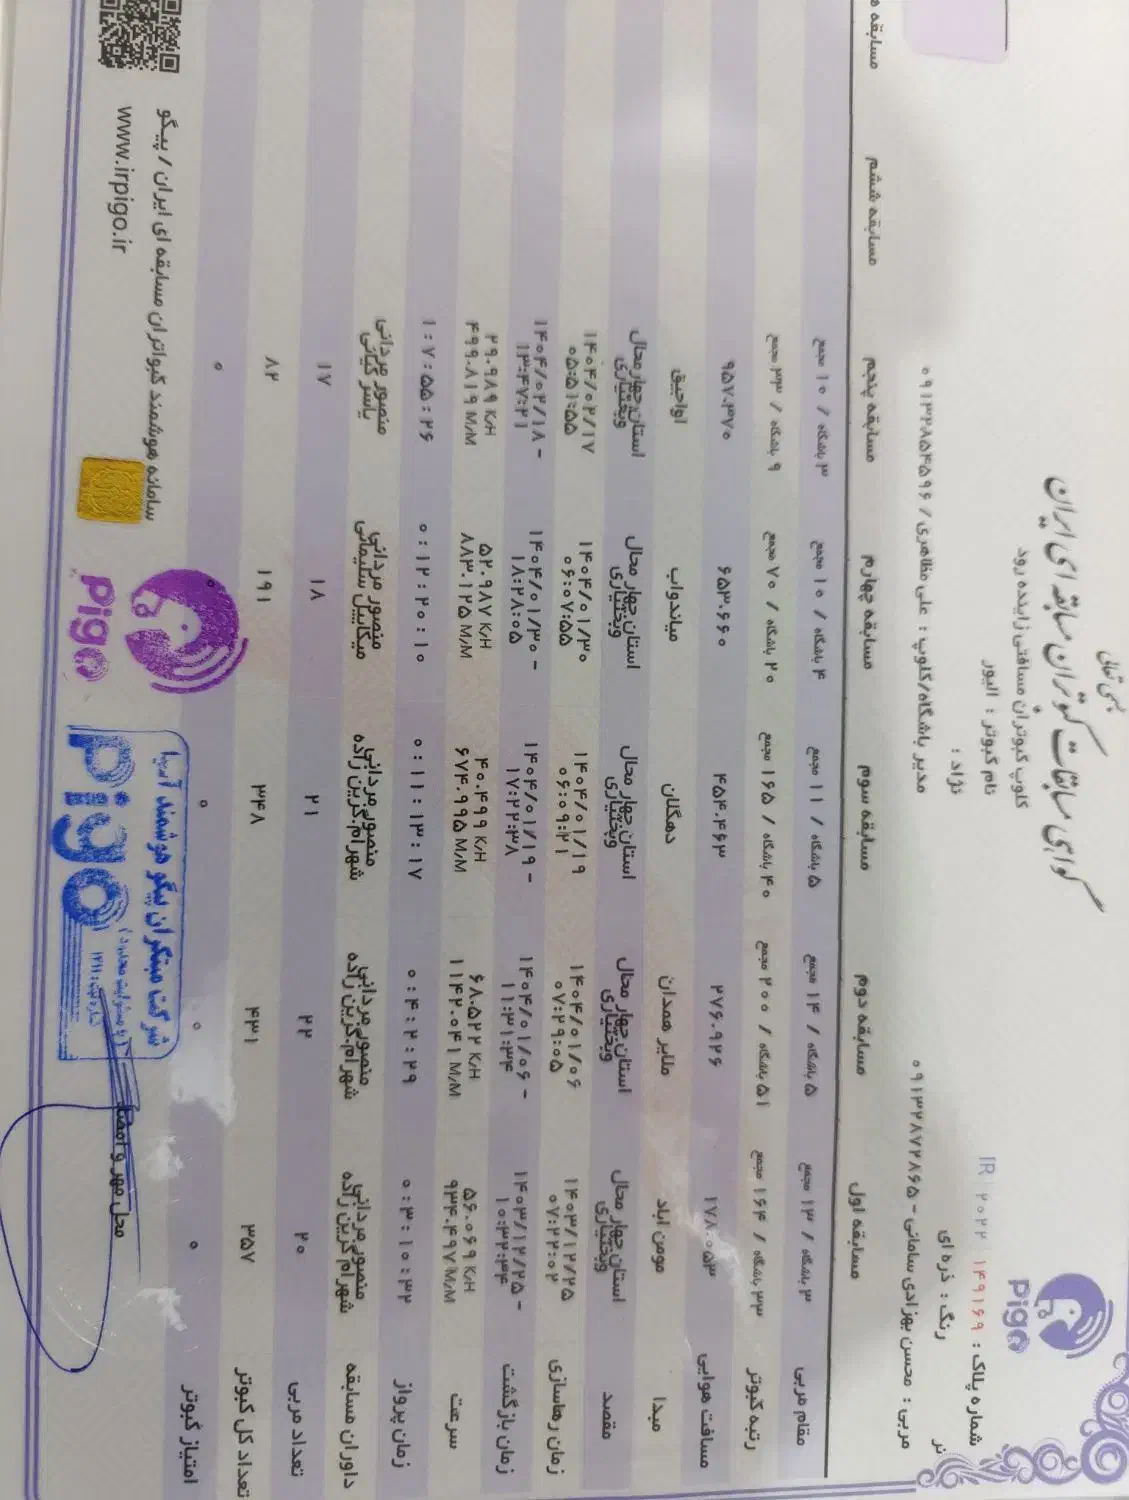 بسمه تعالی
گواهی مسابقات کبوتران مسابقه ای ایران
کلوپ کبوتران مسافتی زاینده رود
pigo
شماره پلاک : IR ۲۰۲۲ ۱۴۹۱۶۹
نام کبوتر : الیور
رنگ : ذره ای
نر
نژاد :
مربی : محسن بهزادی سامانی - ۰۹۱۳۲۸۷۲۸۶۵
مدیر باشگاه/کلوپ : علی مظاهری / ۰۹۱۳۲۸۵۴۵۹۶
مسابقه اول مسابقه دوم مسابقه سوم مسابقه چهارم مسابقه پنجم مسابقه ششم مسابقه
مقام مربی ۳ باشگاه / ۱۳ مجمع ۵ باشگاه / ۱۴ مجمع ۵ باشگاه / ۱۱ مجمع ۴ باشگاه / ۱۰ مجمع ۳ باشگاه / ۱۰ مجمع
رتبه کبوتر ۳۳ باشگاه / ۱۶۴ مجمع ۵۱ باشگاه / ۲۰۰ مجمع ۴۰ باشگاه / ۱۶۵ مجمع ۲۰ باشگاه / ۷۰ مجمع ۹ باشگاه / ۳۳ مجمع
مسافت هوایی ۱۷۸.۰۵۳ ۲۷۶.۹۲۶ ۴۵۴.۴۶۳ ۶۵۳.۶۶۰ ۹۵۷.۳۷۰
مبدا مومن اباد ملایر همدان دهگلان میاندواب اواجیق
مقصد استان چهار محال وبختیاری استان چهار محال وبختیاری استان چهار محال وبختیاری استان چهار محال وبختیاری استان چهار محال وبختیاری
زمان رهاسازی ۱۴۰۳/۱۲/۲۵ ۰۷:۲۲:۰۲ ۱۴۰۴/۰۱/۰۶ ۰۷:۲۹:۰۵ ۱۴۰۴/۰۱/۱۹ ۰۶:۰۹:۲۱ ۱۴۰۴/۰۱/۳۰ ۰۶:۰۷:۵۵ ۱۴۰۴/۰۲/۱۷ ۰۵:۵۱:۵۵
زمان بازگشت ۱۴۰۳/۱۲/۲۵ - ۱۰:۳۲:۳۴ ۱۴۰۴/۰۱/۰۶ - ۱۱:۳۱:۳۴ ۱۴۰۴/۰۱/۱۹ - ۱۷:۲۲:۳۸ ۱۴۰۴/۰۱/۳۰ - ۱۸:۲۸:۰۵ ۱۴۰۴/۰۲/۱۸ - ۱۳:۴۷:۲۱
سرعت ۵۶.۰۶۹ K/H ۹۳۴.۴۹۷ M/M ۶۸.۵۲۲ K/H ۱۱۴۲.۰۴۱ M/M ۴۰.۴۹۹ K/H ۶۷۴.۹۹۵ M/M ۵۲.۹۸۷ K/H ۸۸۳.۱۲۵ M/M ۲۹.۹۸۹ K/H ۴۹۹.۸۱۹ M/M
زمان پرواز ۰:۳:۱۰:۳۲ ۰:۴:۲:۲۹ ۰:۱۱:۱۳:۱۷ ۰:۱۲:۲۰:۱۰ ۱:۷:۵۵:۲۶
داوران مسابقه منصور مردانی شهرام گزین زاده منصور مردانی شهرام گزین زاده منصور مردانی شهرام گزین زاده منصور مردانی میکاییل سلیمانی منصور مردانی یاسر کیانی
تعداد مربی ۲۰ ۲۲ ۲۱ ۱۸ ۱۷
تعداد کل کبوتر ۳۵۷ ۴۳۱ ۳۴۸ ۱۹۱ ۸۲
امتیاز کبوتر ۰ ۰ ۰ ۰ ۰
سامانه هوشمند کبوتران مسابقه ای ایران / پیگو
www.irpigo.ir
pigo
شرکت مبتکران پیگو هوشمند آسیا
pigo
محل مهر و امضا